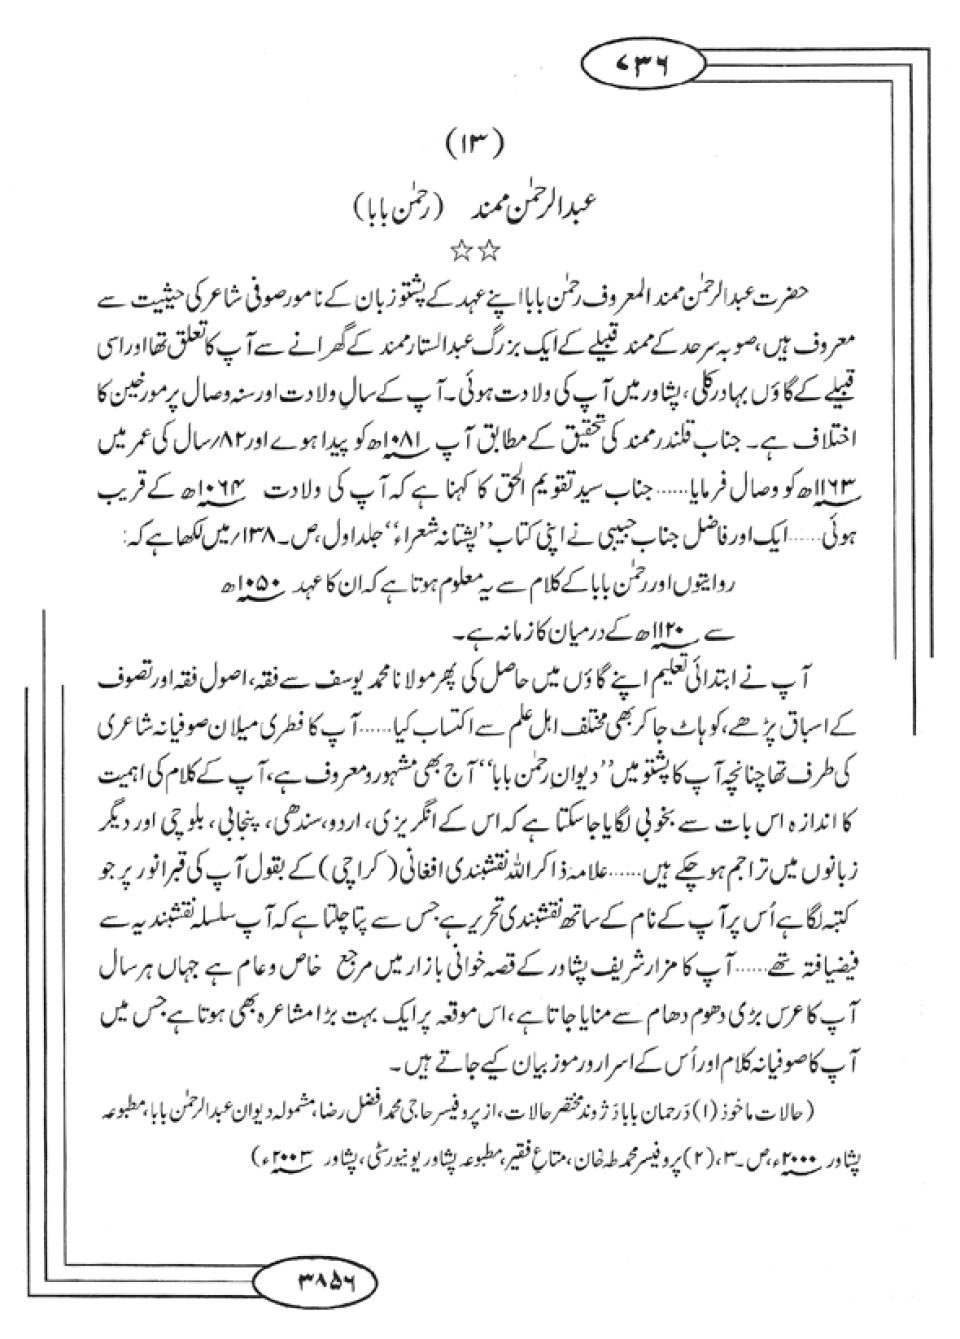 ۷۳۶
(۱۳)
عبدالرحمٰن ممند (رحمٰن بابا)
☆☆
حضرت عبدالرحمٰن ممند المعروف رحمٰن بابا اپنے عہد کے پشتو زبان کے نامور صوفی شاعر کی حیثیت سے
معروف ہیں، صوبہ سرحد کے ممند قبیلے کے ایک بزرگ عبدالستار ممند کے گھرانے سے آپ کا تعلق تھا اور اسی
قبیلے کے گاؤں بہادر کلی، پشاور میں آپ کی ولادت ہوئی۔ آپ کے سالِ ولادت اور سنہ وصال پر مورخین کا
اختلاف ہے۔ جناب قلندر ممند کی تحقیق کے مطابق آپ ۱۰۸۱ھ کو پیدا ہوے اور ۸۲/سال کی عمر میں
۱۱۶۳ھ کو وصال فرمایا...... جناب سید تقویم الحق کا کہنا ہے کہ آپ کی ولادت ۱۰۶۴ھ کے قریب
ہوئی...... ایک اور فاضل جناب حبیبی نے اپنی کتاب ’’پشتانہ شعراء‘‘ جلد اول، ص۔۱۳۸/میں لکھا ہے کہ:
روایتوں اور رحمٰن بابا کے کلام سے یہ معلوم ہوتا ہے کہ ان کا عہد ۱۰۵۰ھ
سے ۱۱۲۰ھ کے درمیان کا زمانہ ہے۔
آپ نے ابتدائی تعلیم اپنے گاؤں میں حاصل کی پھر مولانا محمد یوسف سے فقہ، اصول فقہ اور تصوف
کے اسباق پڑھے، کوہاٹ جا کر بھی مختلف اہل علم سے اکتساب کیا...... آپ کا فطری میلان صوفیانہ شاعری
کی طرف تھا چنانچہ آپ کا پشتو میں ’’دیوانِ رحمٰن بابا‘‘ آج بھی مشہور و معروف ہے، آپ کے کلام کی اہمیت
کا اندازہ اس بات سے بخوبی لگایا جا سکتا ہے کہ اس کے انگریزی، اردو، سندھی، پنجابی، بلوچی اور دیگر
زبانوں میں تراجم ہو چکے ہیں...... علامہ ذاکر اللہ نقشبندی افغانی (کراچی) کے بقول آپ کی قبر انور پر جو
کتبہ لگا ہے اُس پر آپ کے نام کے ساتھ نقشبندی تحریر ہے جس سے پتا چلتا ہے کہ آپ سلسلہ نقشبندیہ سے
فیضیافتہ تھے...... آپ کا مزار شریف پشاور کے قصہ خوانی بازار میں مرجع خاص و عام ہے جہاں ہر سال
آپ کا عرس بڑی دھوم دھام سے منایا جاتا ہے، اس موقعہ پر ایک بہت بڑا مشاعرہ بھی ہوتا ہے جس میں
آپ کا صوفیانہ کلام اور اُس کے اسرار و رموز بیان کیے جاتے ہیں۔
(حالات ماخوذ (۱) دَ رحمان بابا دَ ژوند مختصر حالات، از پروفیسر حاجی محمد افضل رضا، مشمولہ دیوان عبدالرحمٰن بابا، مطبوعہ
پشاور ۲۰۰۰ء، ص۔۳، (۲) پروفیسر محمد طٰہ خان، متاعِ فقیر، مطبوعہ پشاور یونیورسٹی، پشاور ۲۰۰۳ء)
۳۸۵۶